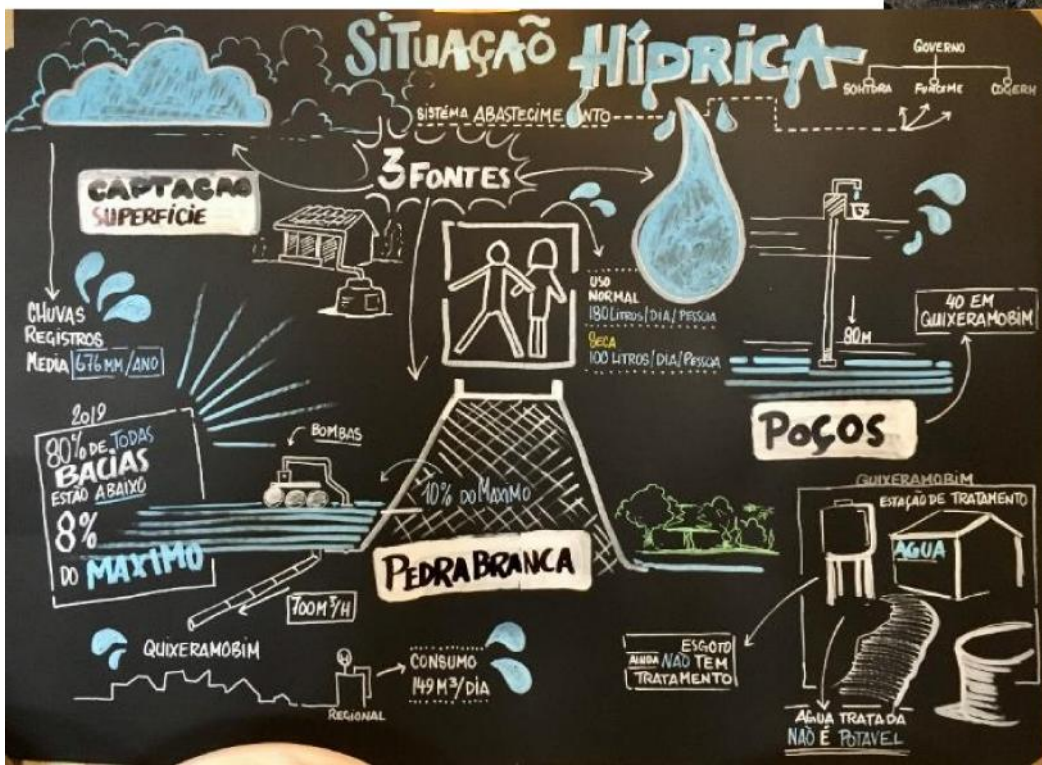 SITUAÇAÕ HÍDRICA
GOVERNO
SOHIDRA FUNCEME COGERH
SISTÉMA ABASTECIMENTO
3 FONTES
CAPTACAO
SUPERFÍCIE
CHUVAS
REGISTROS
MEDIA 676 MM/ANO
USO
NORMAL
180 LITROS/DIA/PESSOA
SECA
100 LITROS/DIA/PESSOA
80M
40 EM
QUIXERAMOBIM
POÇOS
2019
80% DE TODAS
BACIAS
ESTÃO ABAIXO
8%
DO MAXIMO
BOMBAS
10% DO MAXIMO
PEDRA BRANCA
700M³/H
QUIXERAMOBIM
REGIONAL
CONSUMO
149 M³/DIA
QUIXERAMOBIM
ESTAÇÃO DE TRATAMENTO
AGUA
ESGOTO
AINDA NÃO TEM
TRATAMENTO
AGUA TRATADA
NÃO É POTAVEL